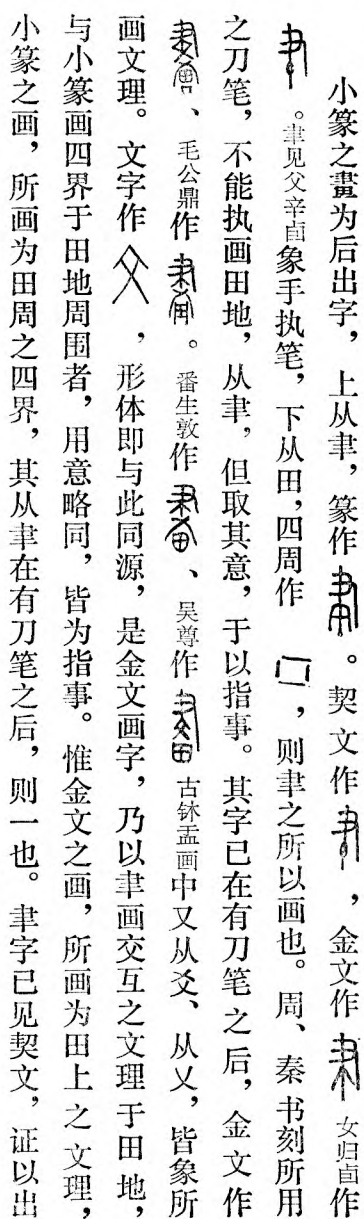 小篆之畫为后出字，上从聿，篆作。契文作，金文作女归卣作
。聿见父辛卣象手执笔，下从田，四周作，则聿之所以画也。周、秦书刻所用
之刀笔，不能执画田地，从聿，但取其意，于以指事。其字已在有刀笔之后，金文作
、毛公鼎作。番生敦作、吴尊作古鉥盂画中又从爻、从乂，皆象所
画文理。文字作，形体即与此同源，是金文画字，乃以聿画交互之文理于田地，
与小篆画四界于田地周围者，用意略同，皆为指事。惟金文之画，所画为田上之文理，
小篆之画，所画为田周之四界，其从聿在有刀笔之后，则一也。聿字已见契文，证以出